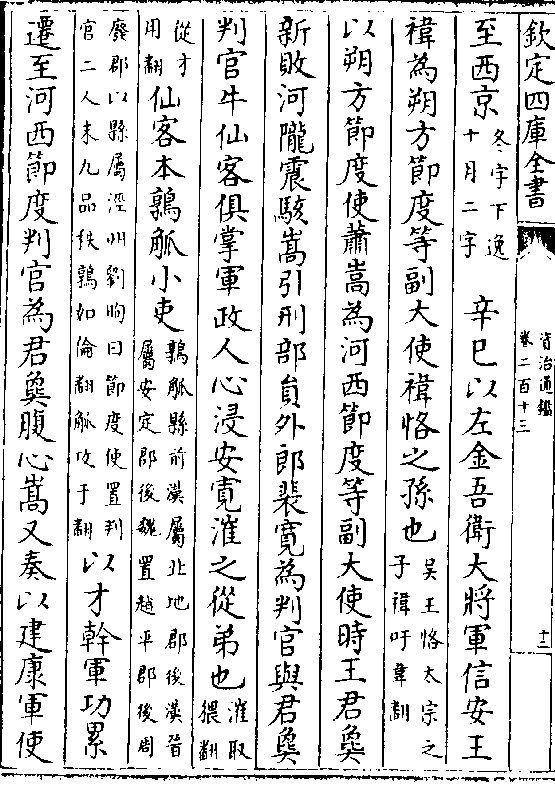 欽定四庫全書
資治通鑑
卷二百十三
十二
至西京冬字下逸十月二字 辛巳以左金吾衛大將軍信安王
褘為朔方節度等副大使褘恪之孫也吳王恪太宗之子褘吁韋翻
以朔方節度使蕭嵩為河西節度等副大使時王君㚟
新敗河隴震駭嵩引刑部員外郎裴寛為判官與君㚟
判官牛仙客俱掌軍政人心浸安寛漼之從弟也漼取猥翻
從才用翻仙客本鶉觚小吏鶉觚縣前漢屬北地郡後漢晉屬安定郡後魏置趙平郡後周
廢郡以縣屬涇州劉昫曰節度使置判官二人未九品秩鶉如倫翻觚攻乎翻以才幹軍功累
遷至河西節度判官為君㚟腹心嵩又奏以建康軍使